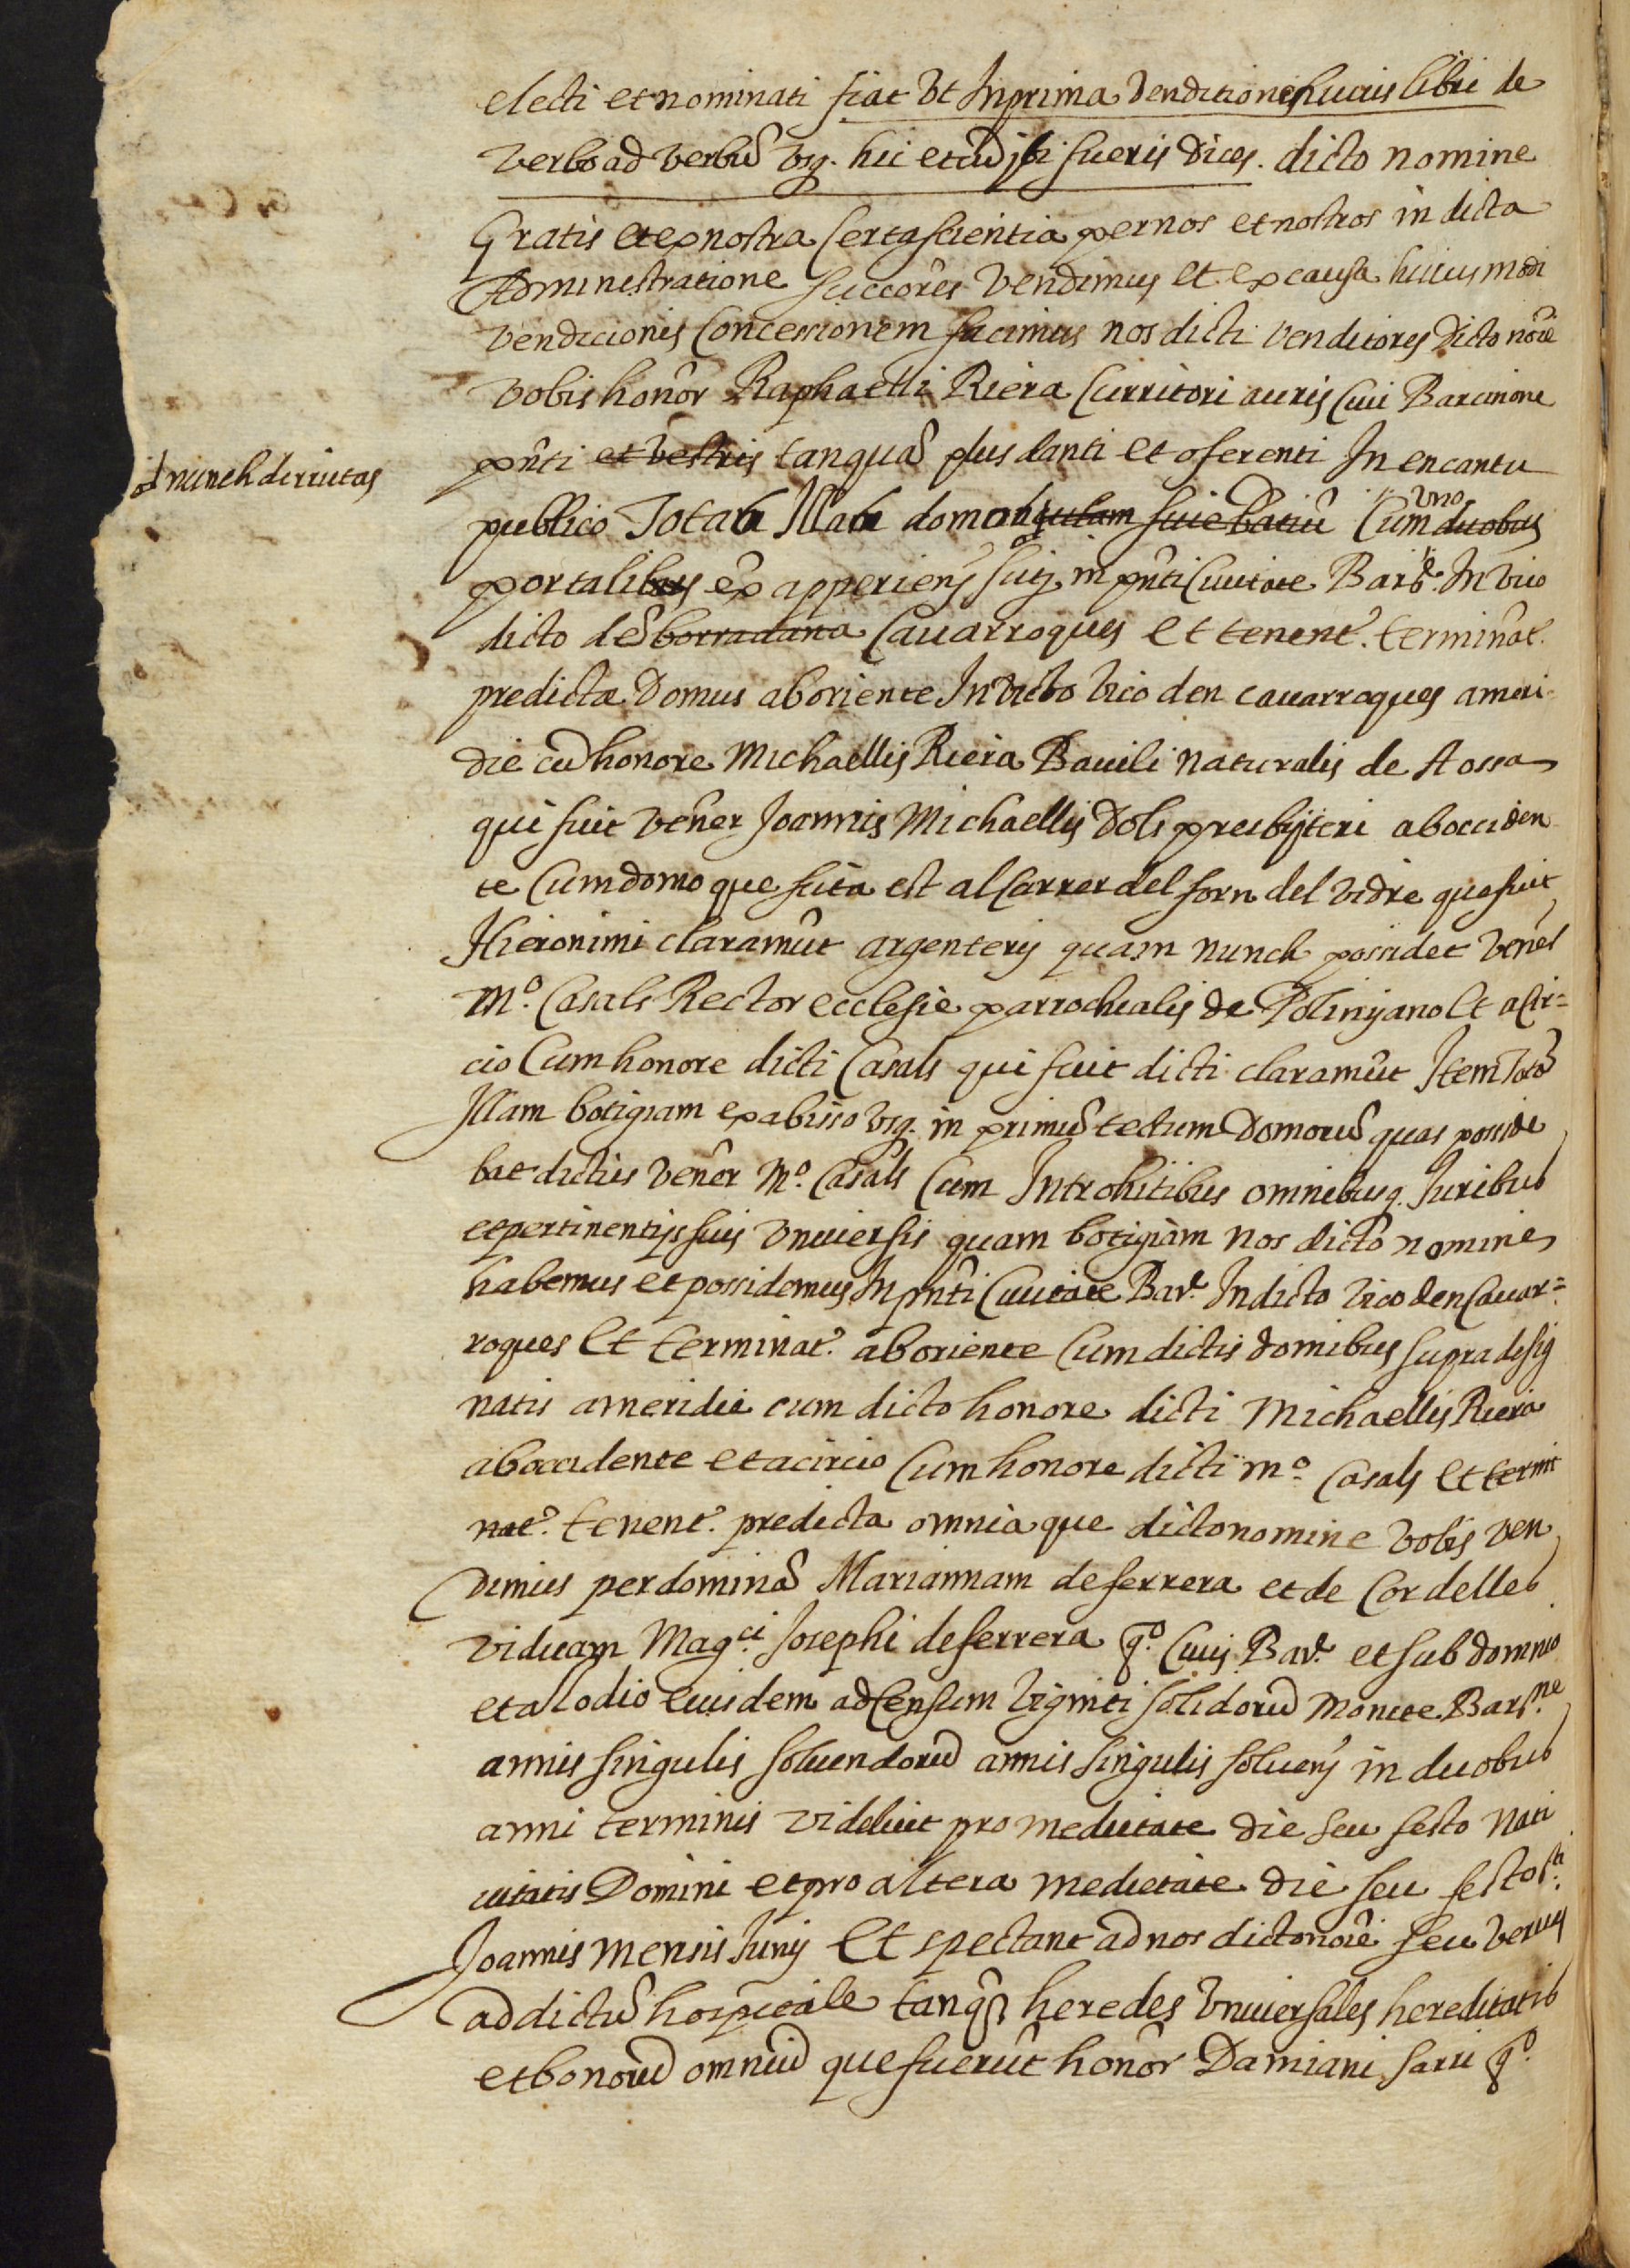 electi et nominati fiat Vt In prima venditione huius libri de
verbo ad verbũ vsq. hic et cũ ibi fueris dices. dicto nomine
Gratis et ex nostra Certa scientia per nos et nostros in dicta
Administratione succõres vendimus et ex causa huius modi
vendicionis Concessionem facimus nos dicti venditores dicto nõie
vobis honõr Raphaelli Riera Curritori auris Ciui Barcinone
pñti et vestris tanquã plus danti et oferenti In encantu
ð nunch dirrutas
publico Totam Illam domunculam siue Patiũ Cum duobus
vno
portalibus ex apperieñ sitã in pñti Ciuitate Barẽ. In vico
dicto deñ borradana Cauarroques et tenent. terminãt.
predicta Domus ab oriente In dicto vico den cauarroques a meri
die cũ honore Michaellis Riera Bauili naturalis de Aossa
qui fuit vener Joannis Michaellis Dols presbyteri ab occiden
te Cum domo que scita est al Carrer del forn del vidre que fuit
Hieronimi claramũt argenterij quam nunch possidet venel
mº. Casals Rector ecclesie parrochialis de Polinyano et a Cir=
cio Cum honore dicti Casals qui fuit dicti claramũt Item Totã
Illam botigiam ex abisso vsq. in primũ tectum Domorũ quas posside
bat dictus venẽr mº. Casals Cum Introhitibus omnibusq. Juribus
et pertinentijs suis vniuersis quam botigiam nos dicto nomine
habemus et possidemus In pñti Ciuitate Barẽ. In dicto vico den Cauar=
roques et terminat. ab oriente Cum dictis domibus supra desig
natis a meridie cum dicto honore dicti Michaellis Riera
ab occidente et a circio Cum honore dicti mº. Casals et termi
nat. tenent. predicta omnia que dicto nomine vobis ven
dimus per dominã Mariannam de ferrera et de Cordelles
viduam Magci. Josephi de ferrera qº. Ciuis Barẽ. et sub domnio
et alodio Euisdem ad Censum viginti solidorũ monete Barne.
annis singulis soluendorũ annis singulis soluenj in duobus
anni terminis videlicet pro medietate die seu festo Nati
uitatis Domini et pro altera medietate die seu festo sti.
Joannis mensis Junij Et spectant ad nos dicto noiẽ seu verius
ad dictũ hospitale tanq̃ heredes vniuersales hereditatis
et bonorũ omniũ que fuerũt honõr Damiani sarri qº.